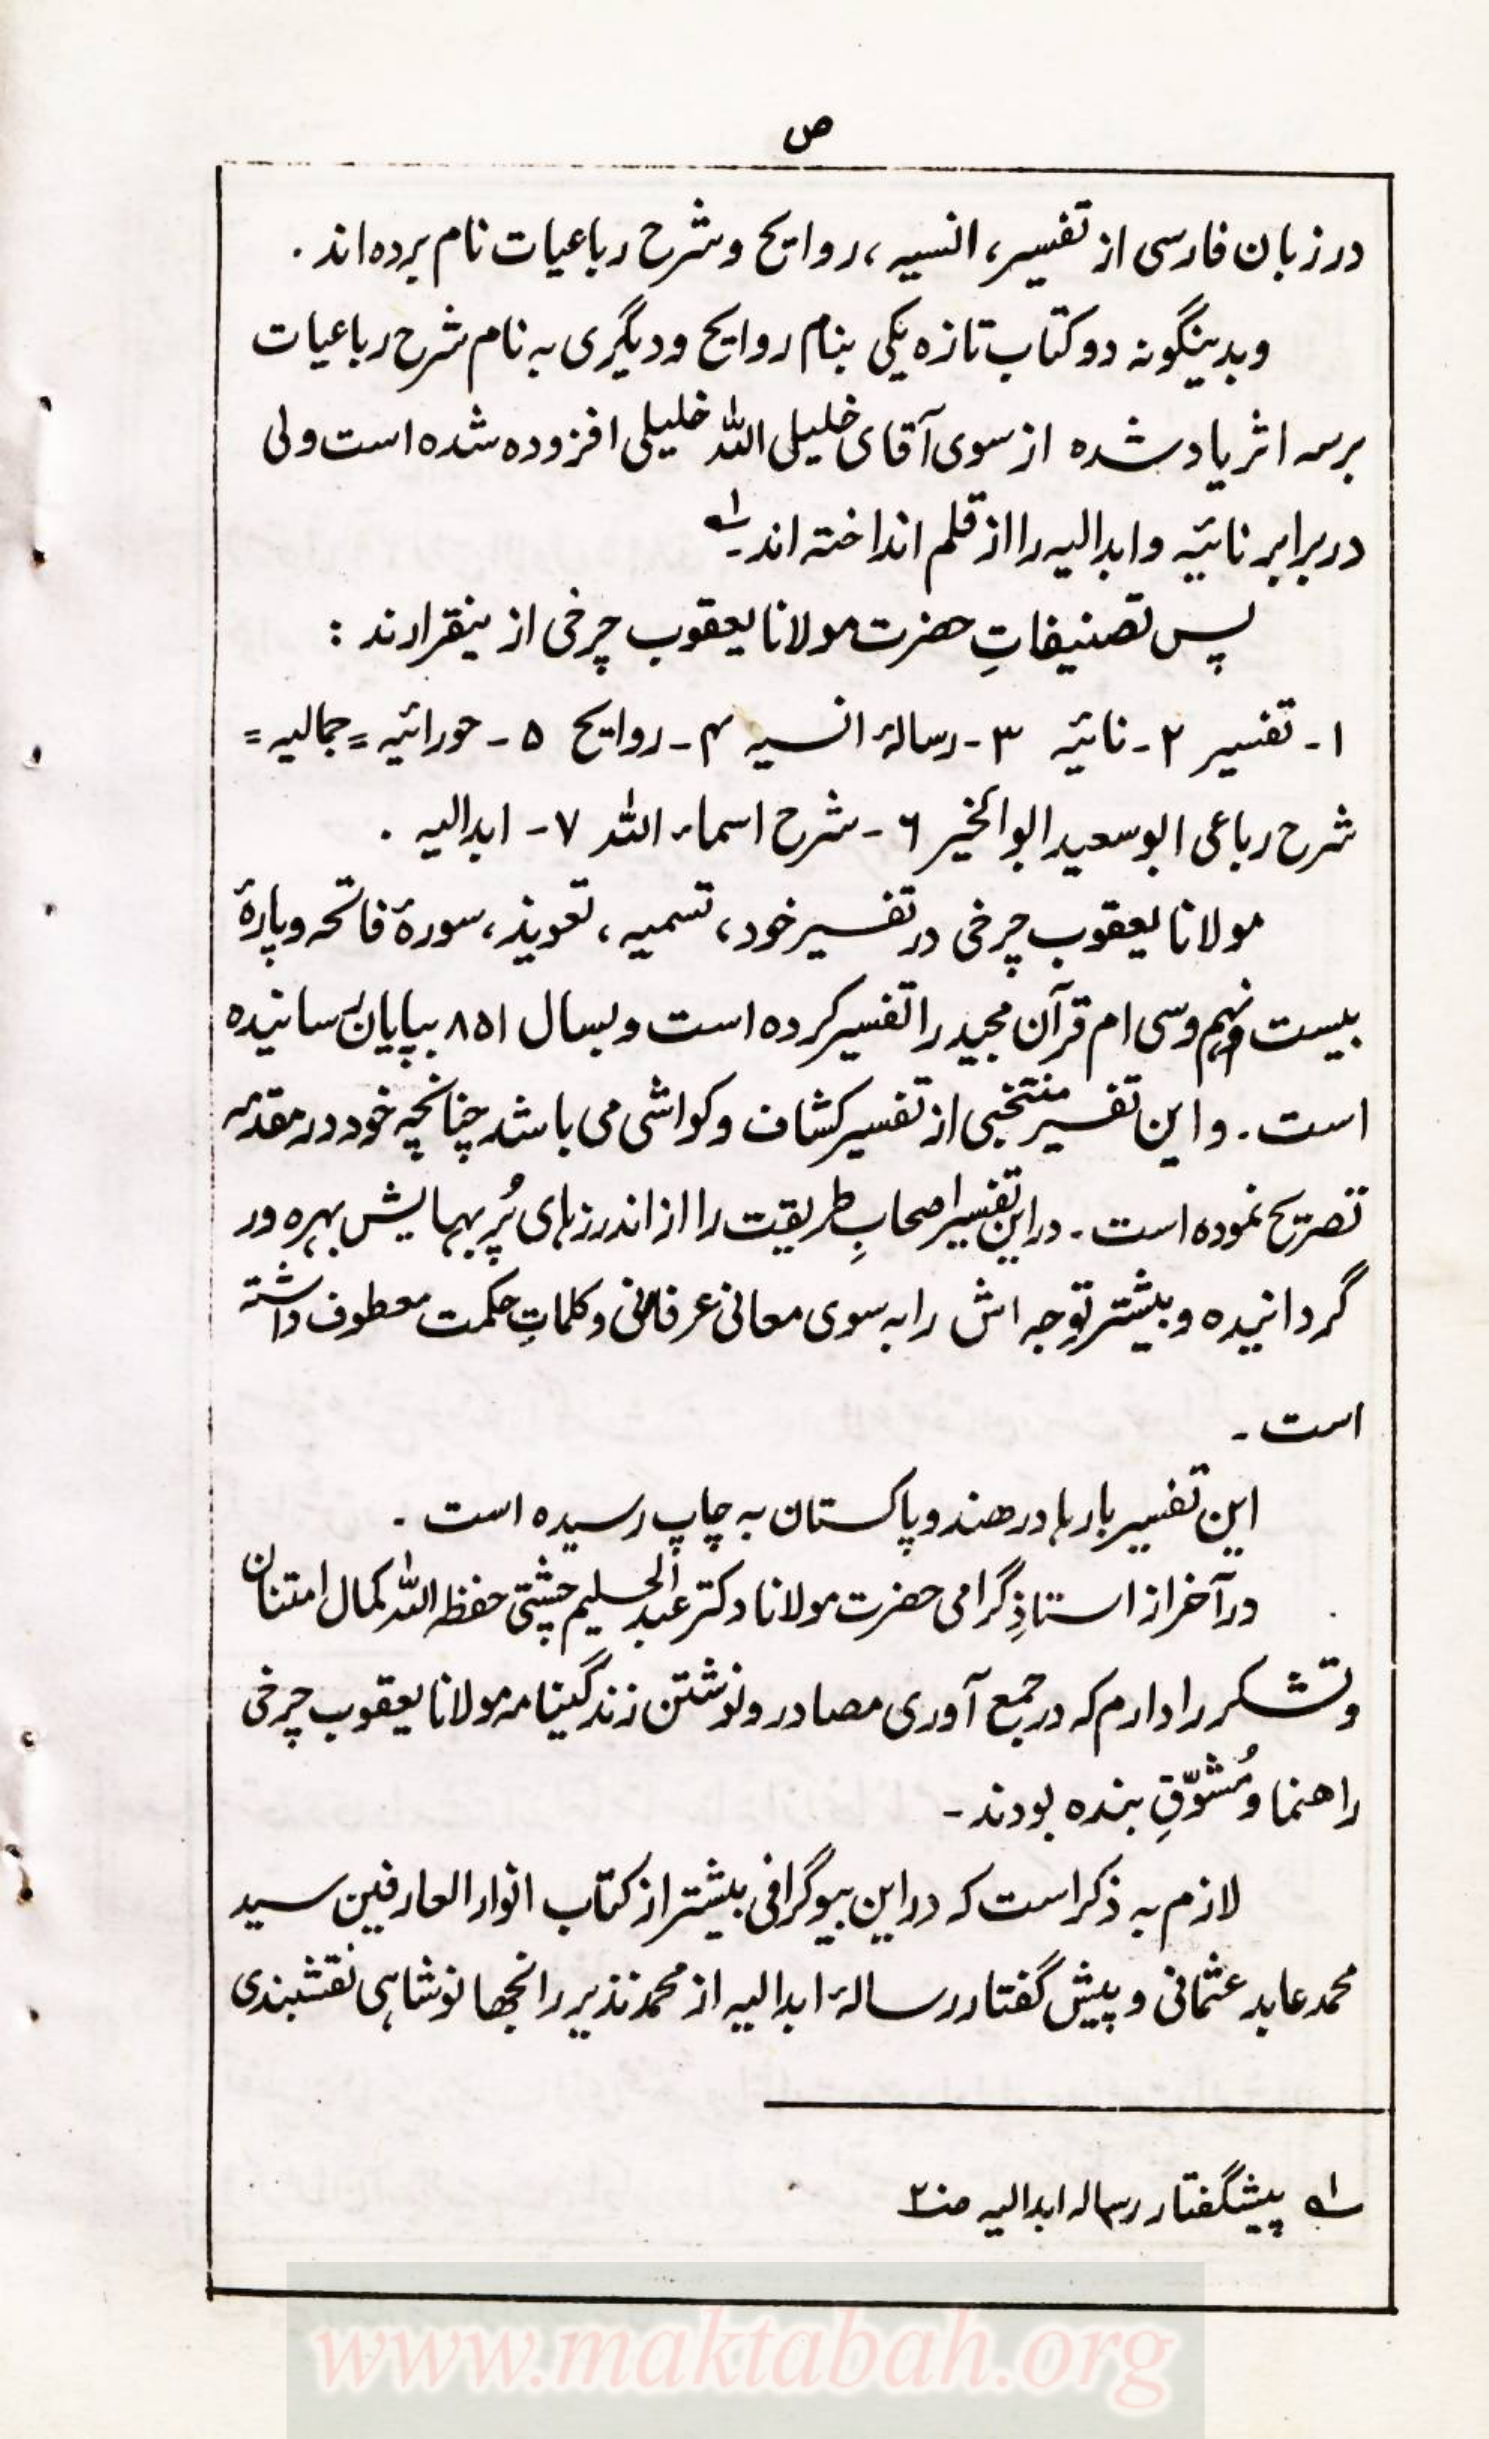 ص
در زبان فارسی از تفسیر، انسیه، روایح و شرح رباعیات نام برده اند .
و بدینگونه دو کتاب تازه یکی بنام روایح و دیگری به نام شرح رباعیات
برسه اثر یاد شده از سوی آقای خلیلی الله خلیلی افزوده شده است ولی
در برابر نائیه و ابدالیه را از قلم انداخته اند ۔ ۱ـه
پس تصنیفاتِ حضرت مولانا یعقوب چرخی از ینقرارند :
۱- تفسیر ۲- نائیه ۳- رسالۀ انسیه ۴- روایح ۵- حورائیه = جمالیه =
شرح رباعی ابوسعید ابوالخیر ۶- شرح اسماء الله ۷- ابدالیه .
مولانا یعقوب چرخی در تفسیر خود، تسمیه، تعویذ، سورۀ فاتحه و پارۀ
بیست و نهم و سی ام قرآن مجید را تفسیر کرده است و بسال ۸۵۱ بپایان رسانیده
است . و این تفسیر منتخبی از تفسیر کشاف و کواشی می باشد چنانچه خود در مقدمه
تصریح نموده است . در این تفسیر اصحابِ طریقت را از اندرزهای پُر بهایش بهره ور
گردانیده و بیشتر توجه اش را به سوی معانی عرفانی و کلماتِ حکمت معطوف داشته
است ۔
این تفسیر بارها در هند و پاکستان به چاپ رسیده است .
در آخر از استاذِ گرامی حضرت مولانا دکتر عبدالحلیم چشتی حفظه الله کمال امتنان
و تشکر را دارم که در جمع آوری مصادر و نوشتن زندگینامه مولانا یعقوب چرخی
راهنما و مُشوّقِ بنده بودند ۔
لازم به ذکر است که در این بیوگرافی بیشتر از کتاب انوار العارفین سید
محمد عابد عثمانی و پیش گفتار رسالۀ ابدالیه از محمد نذیر رانجها نوشاهی نقشبندی
۱ـه پیشگفتار رساله ابدالیه صـ۲
www.maktabah.org